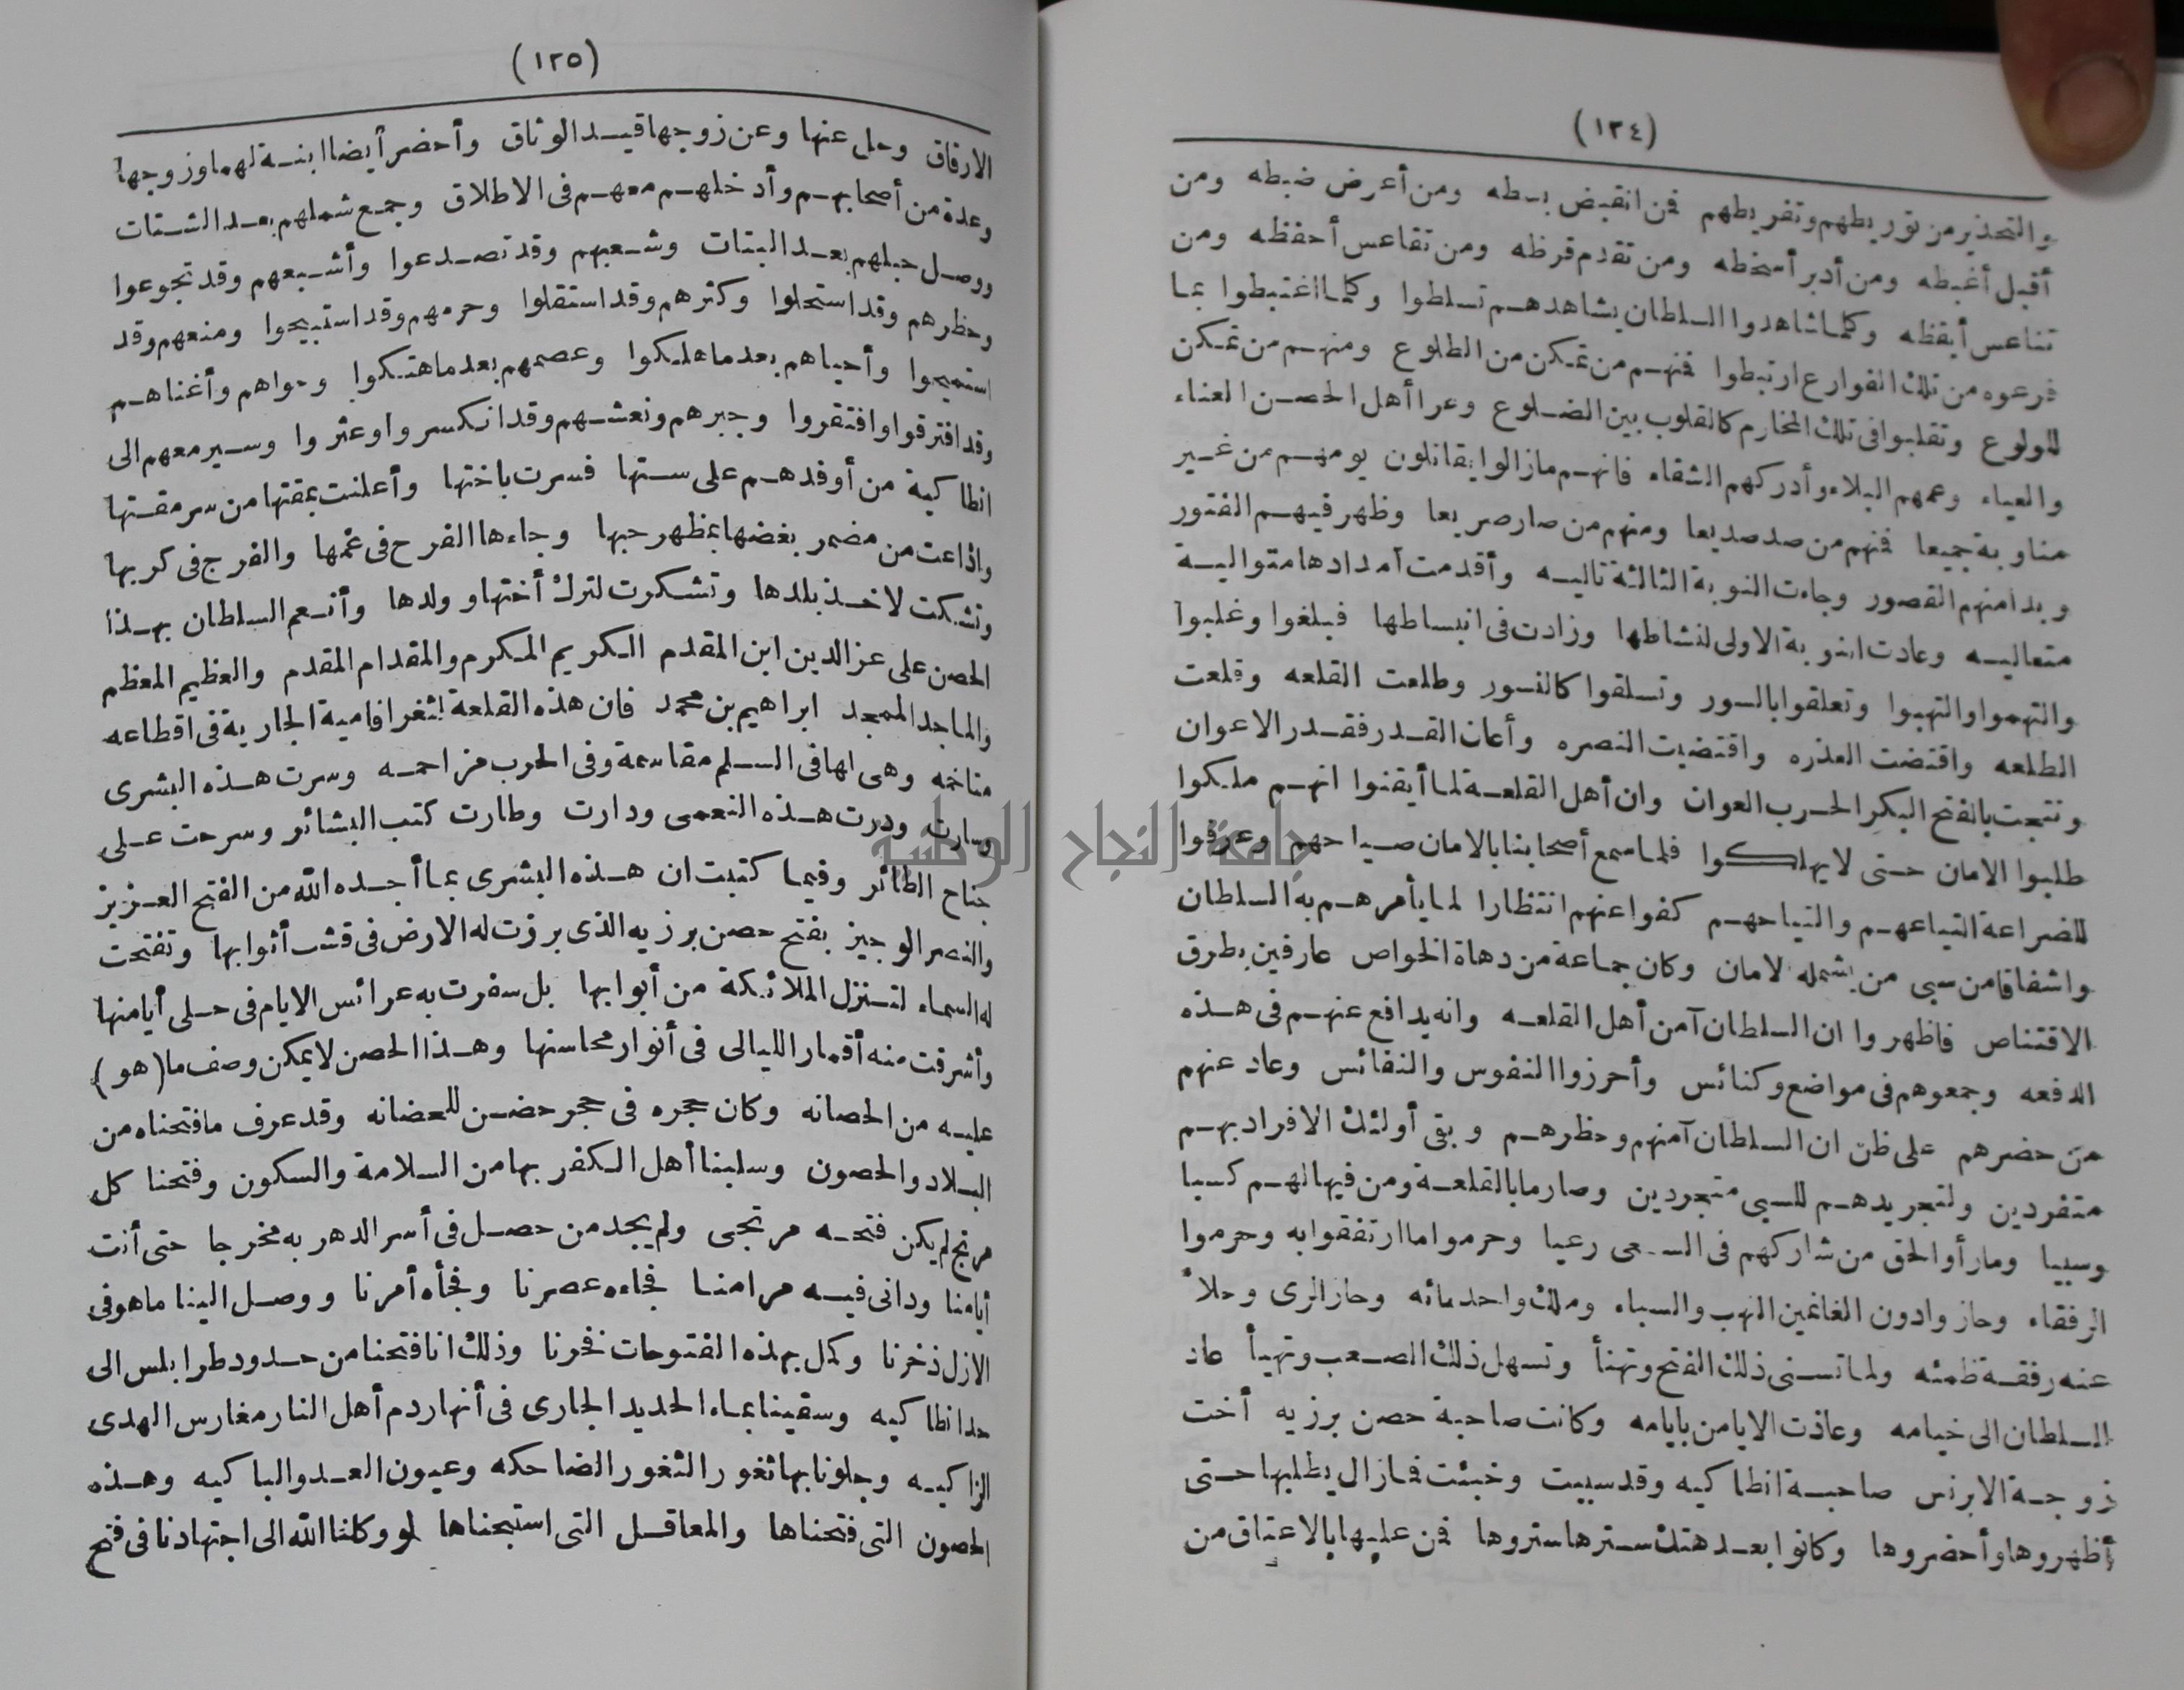 (١٣٤)
والتحذير من توريطهم وتفريطهم فمن انقبض بسطه ومن أعرض ضبطه ومن
أقبل أغبطه ومن أدبر أسخطه ومن تقدم قرظه ومن تقاعس أحفظه ومن
تناعس أيقظه وكلما شاهدوا السلطان يشاهدهم تسلطوا وكلما اغتبطوا بما
فرعوه من تلك الفوارع ارتبطوا فمنهم من تمكن من الطلوع ومنهم من تمكن
للولوع وتقلبوا فى تلك المخارم كالقلوب بين الضلوع وعرا أهل الحصن العناء
والعياء وعمهم البلاء وأدركهم الشقاء فانهم مازالوا يقاتلون يومهم من غير
مناوبة جميعا فمنهم من صد صديعا ومنهم من صار صريعا وظهر فيهم الفتور
وبدا منهم القصور وجاءت النوبة الثالثة تاليه وأقدمت امدادها متواليه
متعاليه وعادت النوبة الاولى لنشاطها وزادت فى انبساطها فبلغوا وغلبوا
والتهموا والتهبوا وتعلقوا بالسور وتسلقوا كالنسور وطلعت القلعه وقلعت
الطلعه واقتضت العذره واقتضيت النصره وأعان القدر فقدر الاعوان
ونتجت بالفتح البكر الحرب العوان وان أهل القلعة لما أيقنوا انهم ملكوا
طلبوا الامان حتى لايهلكوا فلما سمع أصحابنا بالامان صياحهم وعرفوا
للضراعة التياعهم والتياحهم كفوا عنهم انتظارا لما يأمرهم به السلطان
واشفاقا من سبى من يشمله لامان وكان جماعة من دهاة الخواص عارفين بطرق
الاقتناص فاظهروا ان السلطان آمن أهل القلعه وانه يدافع عنهم فى هذه
الدفعه وجمعوهم فى مواضع وكنائس وأحرزوا النفوس والنفائس وعاد عنهم
من حضرهم على ظن ان السلطان آمنهم وحظرهم وبقى أولئك الافراد بهم
متفردين ولتجريدهم للسبى متجردين وصار ما بالقلعة ومن فيها لهم كسبا
وسبيا وما رأوا لحق من شاركهم فى السعى رعيا وحرموا ما ارتفقوا به وحرموا
الرفقاء وحازوا دون الغانمين النهب والسباء وملك واحد مائه وحاز الرى وحلا
عنه رفقة ظمئه ولما تسنى ذلك الفتح وتهنأ وتسهل ذلك الصعب وتهيأ عاد
السلطان الى خيامه وعاذت الايامن بايامه وكانت صاحبة حصن برزيه أخت
زوجة الابرنس صاحبة انطاكيه وقد سبيت وخبئت فمازال يطلبها حتى
أظهروها وأحضروها وكانوا بعد هتك سترها ستروها فمن عليها بالاعتاق من
(١٣٥)
الارقاق وحل عنها وعن زوجها قيد الوثاق وأحضر أيضا ابنة لهما وزوجها
وعدة من أصحابهم وأدخلهم معهم فى الاطلاق وجمع شملهم بعد الشتات
ووصل حبلهم بعد البتات وشعبهم وقد تصدعوا وأشبعهم وقد تجوعوا
وحظرهم وقد استحلوا وكثرهم وقد استقلوا وحرمهم وقد استبيحوا ومنعهم وقد
استميحوا وأحياهم بعد ما هلكوا وعصمهم بعد ما هتكوا وحواهم وأغناهم
وقد افترقوا وافتقروا وجبرهم ونعشهم وقد انكسروا وعثروا وسير معهم الى
انطاكية من أوفدهم على ستها فسرت باختها وأعلنت بمقتها من سر مقتها
واذاعت من مضمر بغضها بمظهر حبها وجاءها الفرح فى غمها والفرج فى كربها
وتشكت لاخذ بلدها وتشكرت لترك أختها وولدها وأنعم السلطان بهذا
الحصن على عز الدين ابن المقدم الكريم المكرم والمقدام المقدم والعظيم المعظم
والماجد الممجد ابراهيم بن محمد فان هذه القلعة لثغر افامية الجارية فى اقطاعه
متاخمه وهى لها فى السلم مقاسمة وفى الحرب مزاحمه وسرت هذه البشرى
وسارت ودرت هذه النعمى ودارت وطارت كتب البشائر وسرحت على
جناح الطائر وفيما كتبت ان هذه البشرى بما أجده الله من الفتح العزيز
والنصر الوجيز بفتح حصن برزيه الذى برزت له الارض فى قشب أثوابها وتفتحت
له السماء لتنزل الملائكة من أبوابها بل سفرت به عرائس الايام فى حلى أيامنها
وأشرقت منه أقمار الليالى فى أنوار محاسنها وهذا الحصن لايمكن وصف ما (هو)
عليه من الحصانه وكان حجره فى حجر حضن للحضانه وقد عرف ما فتحناه من
البلاد والحصون وسلبنا أهل الكفر بها من السلامة والسكون وفتحنا كل
مرتج لم يكن فتحه مرتجى ولم يجد من حصل فى أسر الدهر به مخرجا حتى أتت
أيامنا ودانى فيه مرامنا فجاءه عصرنا وفجأه أمرنا ووصل الينا ما هو فى
الازل ذخرنا وكمل بهذه الفتوحات فخرنا وذلك انا فتحنا من حدود طرابلس الى
حد انطاكيه وسقينا بماء الحديد الجارى فى أنهار دم أهل النار مغارس الهدى
الزاكيه وجلونا بها ثغور الثغور الضاحكه وعيون العدو الباكيه وهذه
الحصون التى فتحناها والمعاقل التى استبحناها لو وكلنا الله الى اجتهادنا فى فتح
جامعة النجاح الوطنية